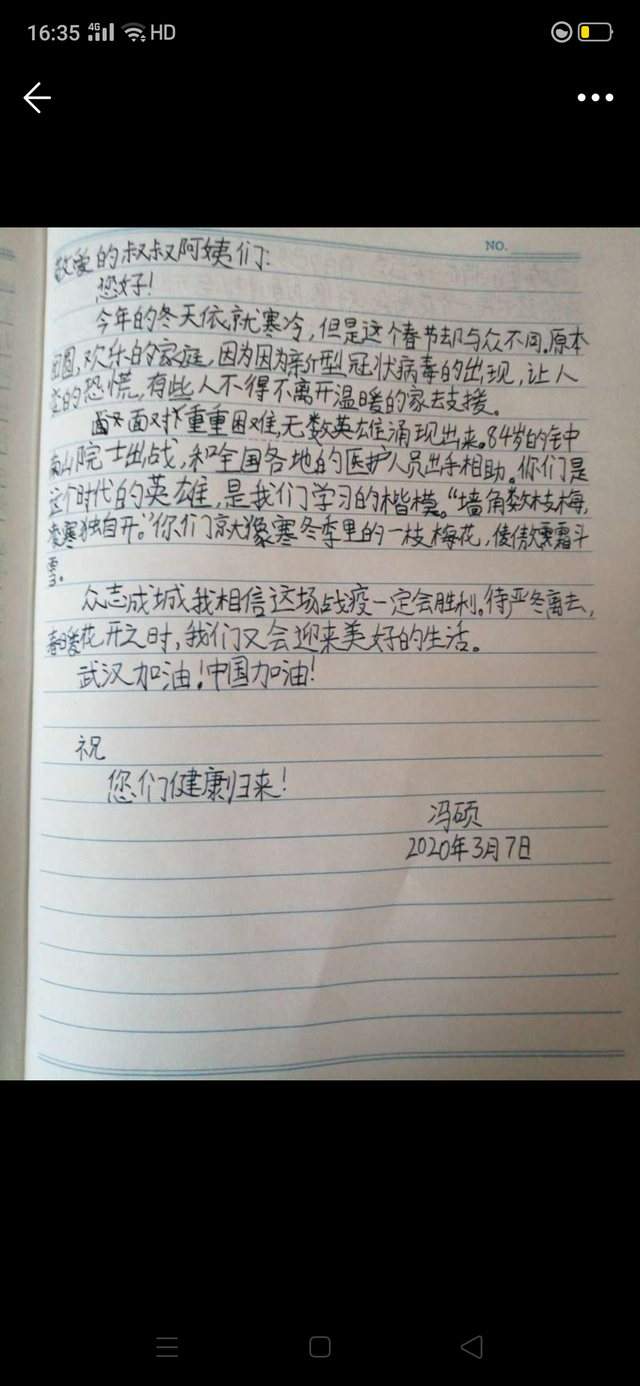 16:35 4G HD
NO.
敬爱的叔叔阿姨们:
您好!
今年的冬天依就寒冷,但是这个春节却与众不同.原本
团圆,欢乐的家庭,因为因为新型冠状病毒的出现,让人
的恐慌,有些人不得不离开温暖的家去支援。
面对重重困难,无数英雄涌现出来。84岁的钟
南山院士出战,和全国各地的医护人员出手相助。你们是
这个时代的英雄,是我们学习的楷模。“墙角数枝梅,
凌寒独自开。”你们就像寒冬季里的一枝梅花,傲霜斗
雪。
众志成城,我相信这场战疫一定会胜利。待严冬离去,
春暖花开之时,我们又会迎来美好的生活。
武汉加油!中国加油!
祝
您们健康归来!
冯硕
2020年3月7日